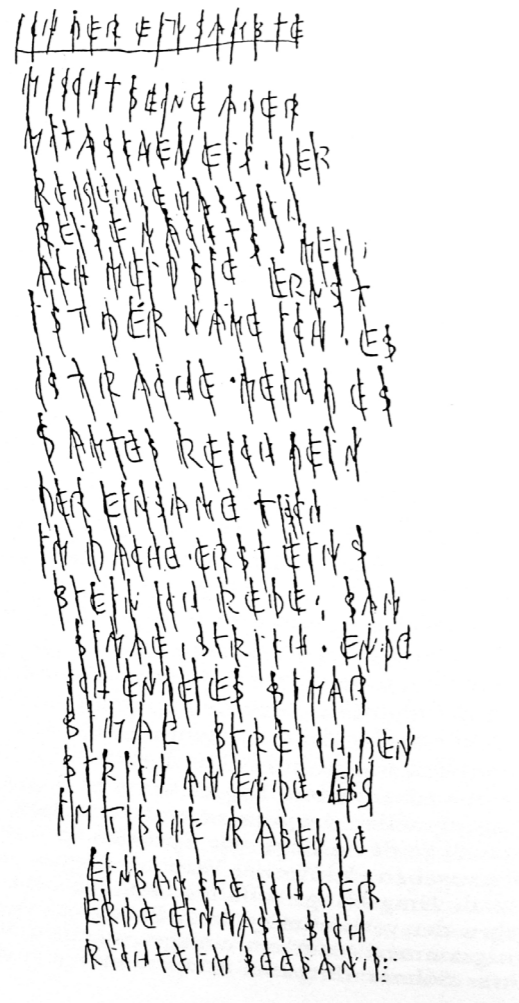 ICH DER EINSAMSTE
MISCHT SEINE AIER
MIT ASCHENEIS. DER
REISENDE MAST ICH
REISE NACHTS, MEIN
ACH MEID SIE ERNST
IST DER NAME ICH. ES
IST RACHE. MEIN DES
SAMTES REICH DEIN
DER EINSAME TISCH
IM DACHE. ERST EINS
STEIN ICH REDE, SAM
SIMAE, STRICH. ENDE
ICH ENDETES SIMAR
SIMAE STREICH, DEN
STRICH AM ENDE. ES
IM TISCHE RASENDE
EINSAMSTE ICH DER
ERDE EINMAST SICH
RICHTE IM